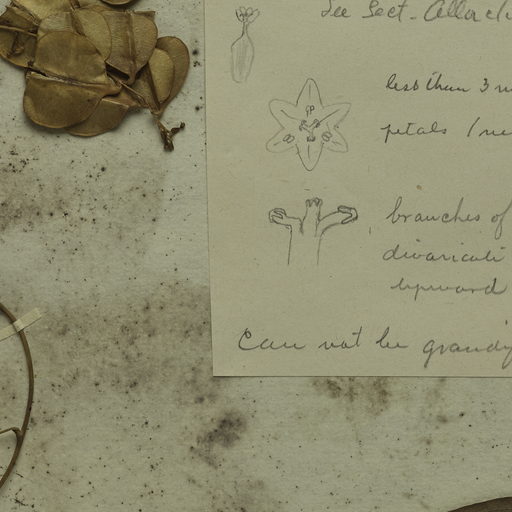 See Sect. Allo
less than 3 m
petals 1 m
branches of
divaricate
upward
Can not be grandi